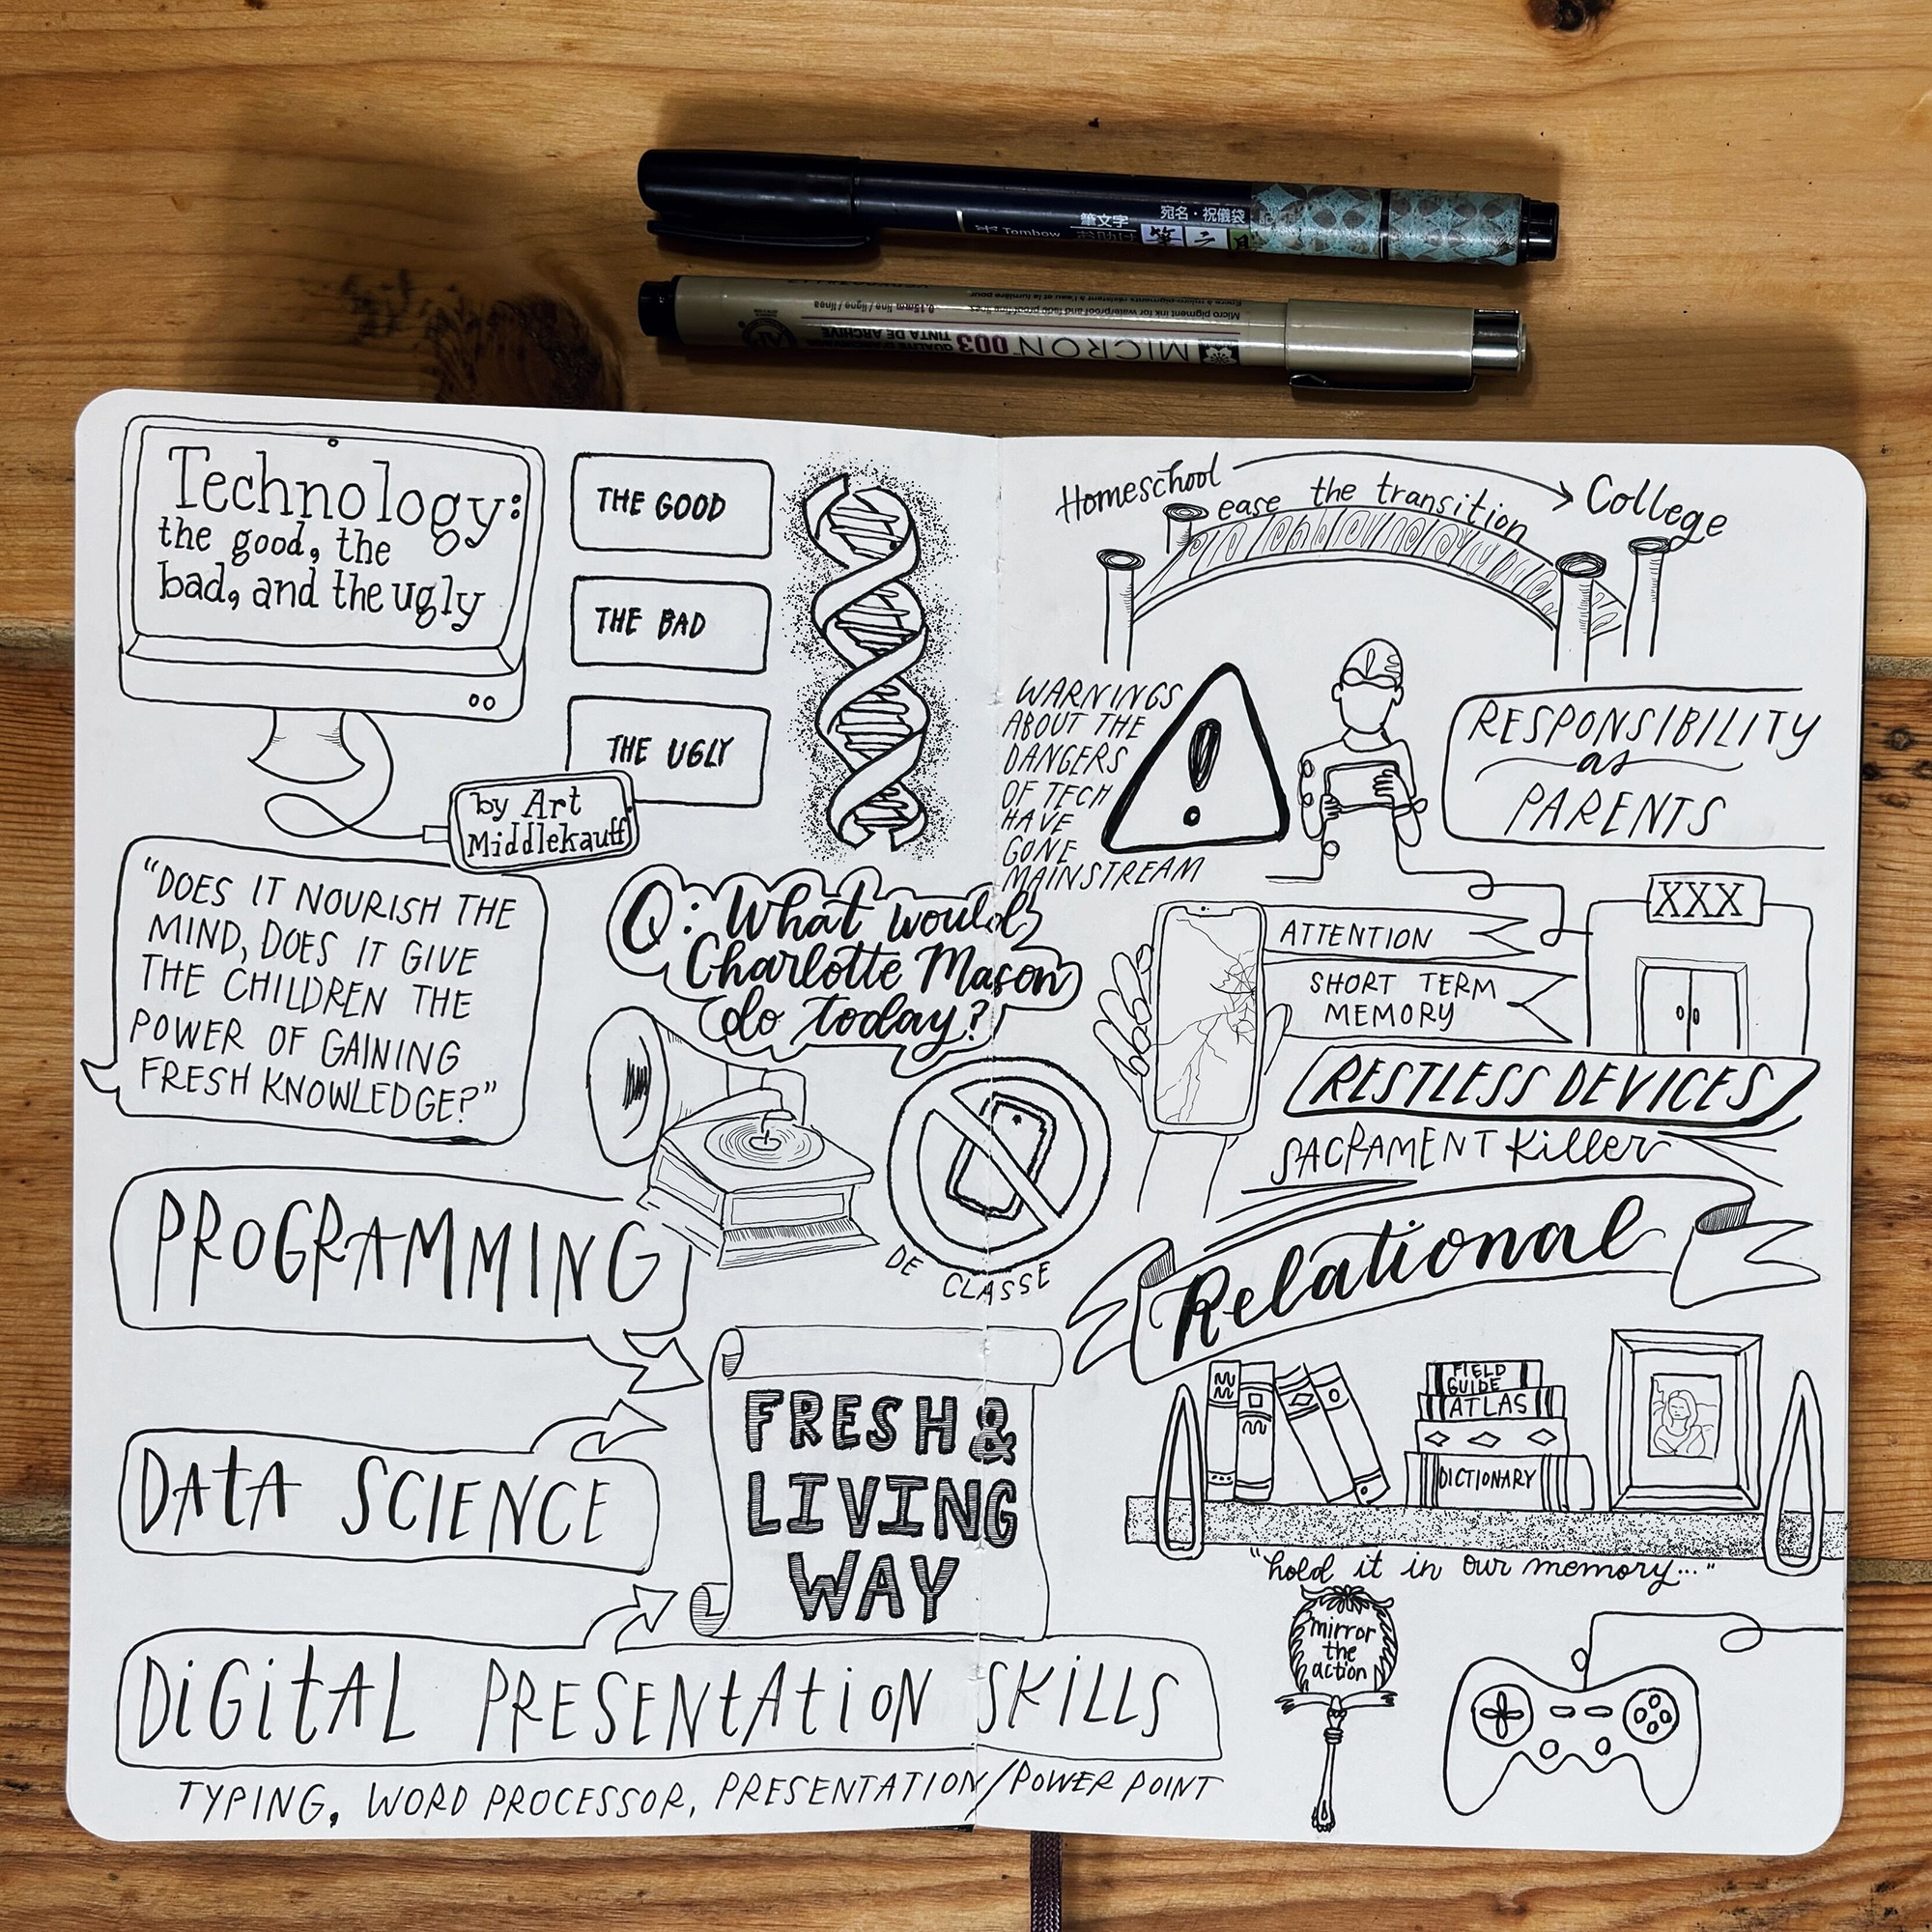 筆文字
宛名・祝儀袋
Tombow
Micro pigment ink for waterproof and fade proof fine lines
MICRON 003
QUALITE D'ARCHIVE
TINTA DE ARCHIVE
0.15mm line / ligne / línea
Technology:
the good, the
bad, and the ugly
by Art
Middlekauff
THE GOOD
THE BAD
THE UGLY
"DOES IT NOURISH THE
MIND, DOES IT GIVE
THE CHILDREN THE
POWER OF GAINING
FRESH KNOWLEDGE?"
Q: What would
Charlotte Mason
do today?
DE CLASSE
PROGRAMMING
DATA SCIENCE
DIGITAL PRESENTATION SKILLS
TYPING, WORD PROCESSOR, PRESENTATION/POWER POINT
FRESH &
LIVING
WAY
Homeschool
ease the transition
College
WARNINGS
ABOUT THE
DANGERS
OF TECH
HAVE
GONE
MAINSTREAM
RESPONSIBILITY
as
PARENTS
XXX
ATTENTION
SHORT TERM
MEMORY
RESTLESS DEVICES
SACRAMENT Killer
Relational
FIELD
GUIDE
ATLAS
DICTIONARY
"hold it in our memory..."
mirror
the
action